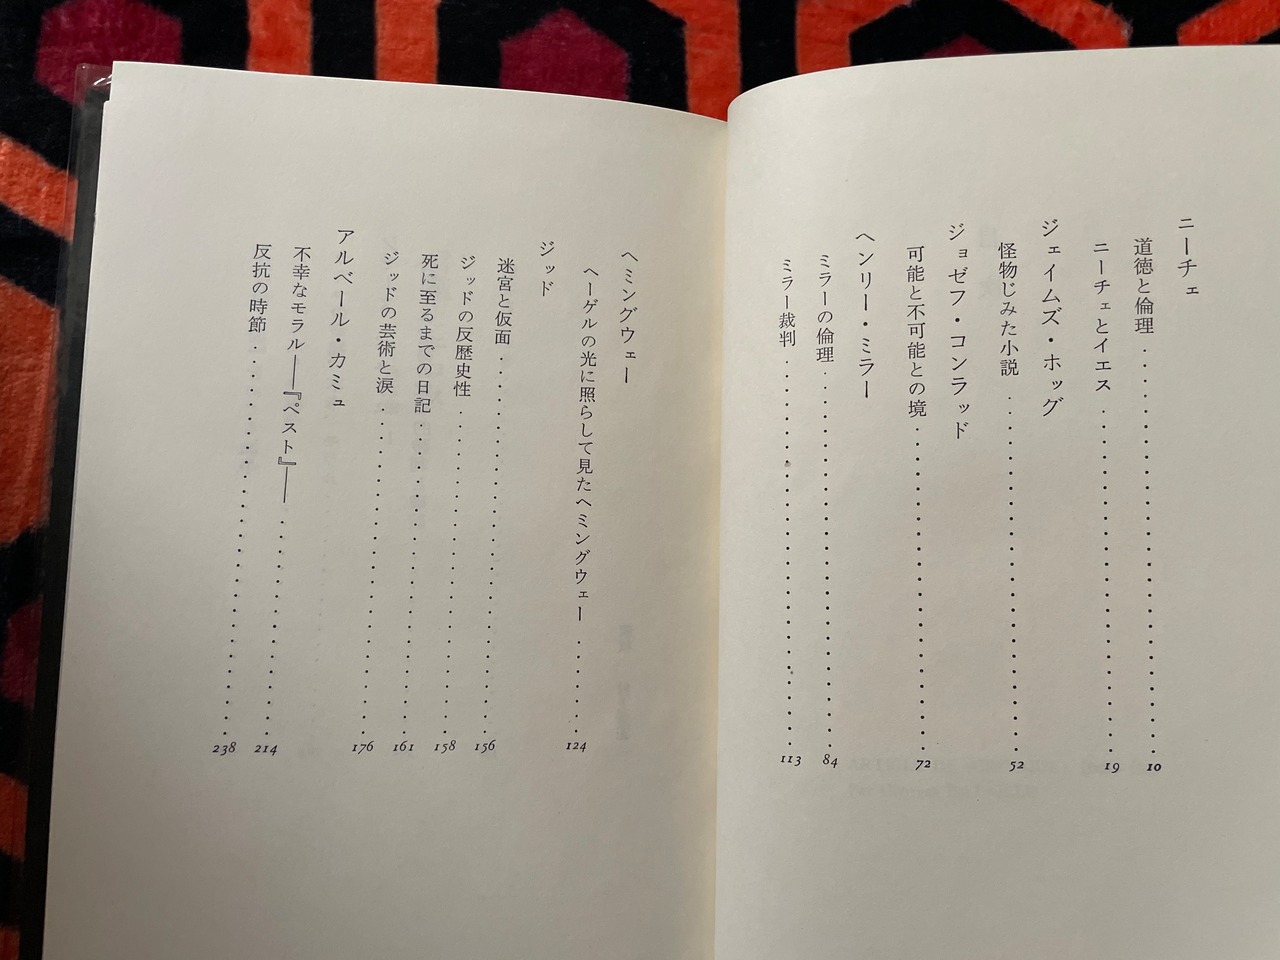 ニーチェ
道徳と倫理 10
ニーチェとイエス 19
ジェイムズ・ホッグ
怪物じみた小説 52
ジョゼフ・コンラッド
可能と不可能との境 72
ヘンリー・ミラー
ミラーの倫理 84
ミラー裁判 113
ヘミングウェー
ヘーゲルの光に照らして見たヘミングウェー 124
ジッド
迷宮と仮面 156
ジッドの反歴史性 158
死に至るまでの日記 161
ジッドの芸術と涙 176
アルベール・カミュ
不幸なモラル──『ペスト』── 214
反抗の時節 238